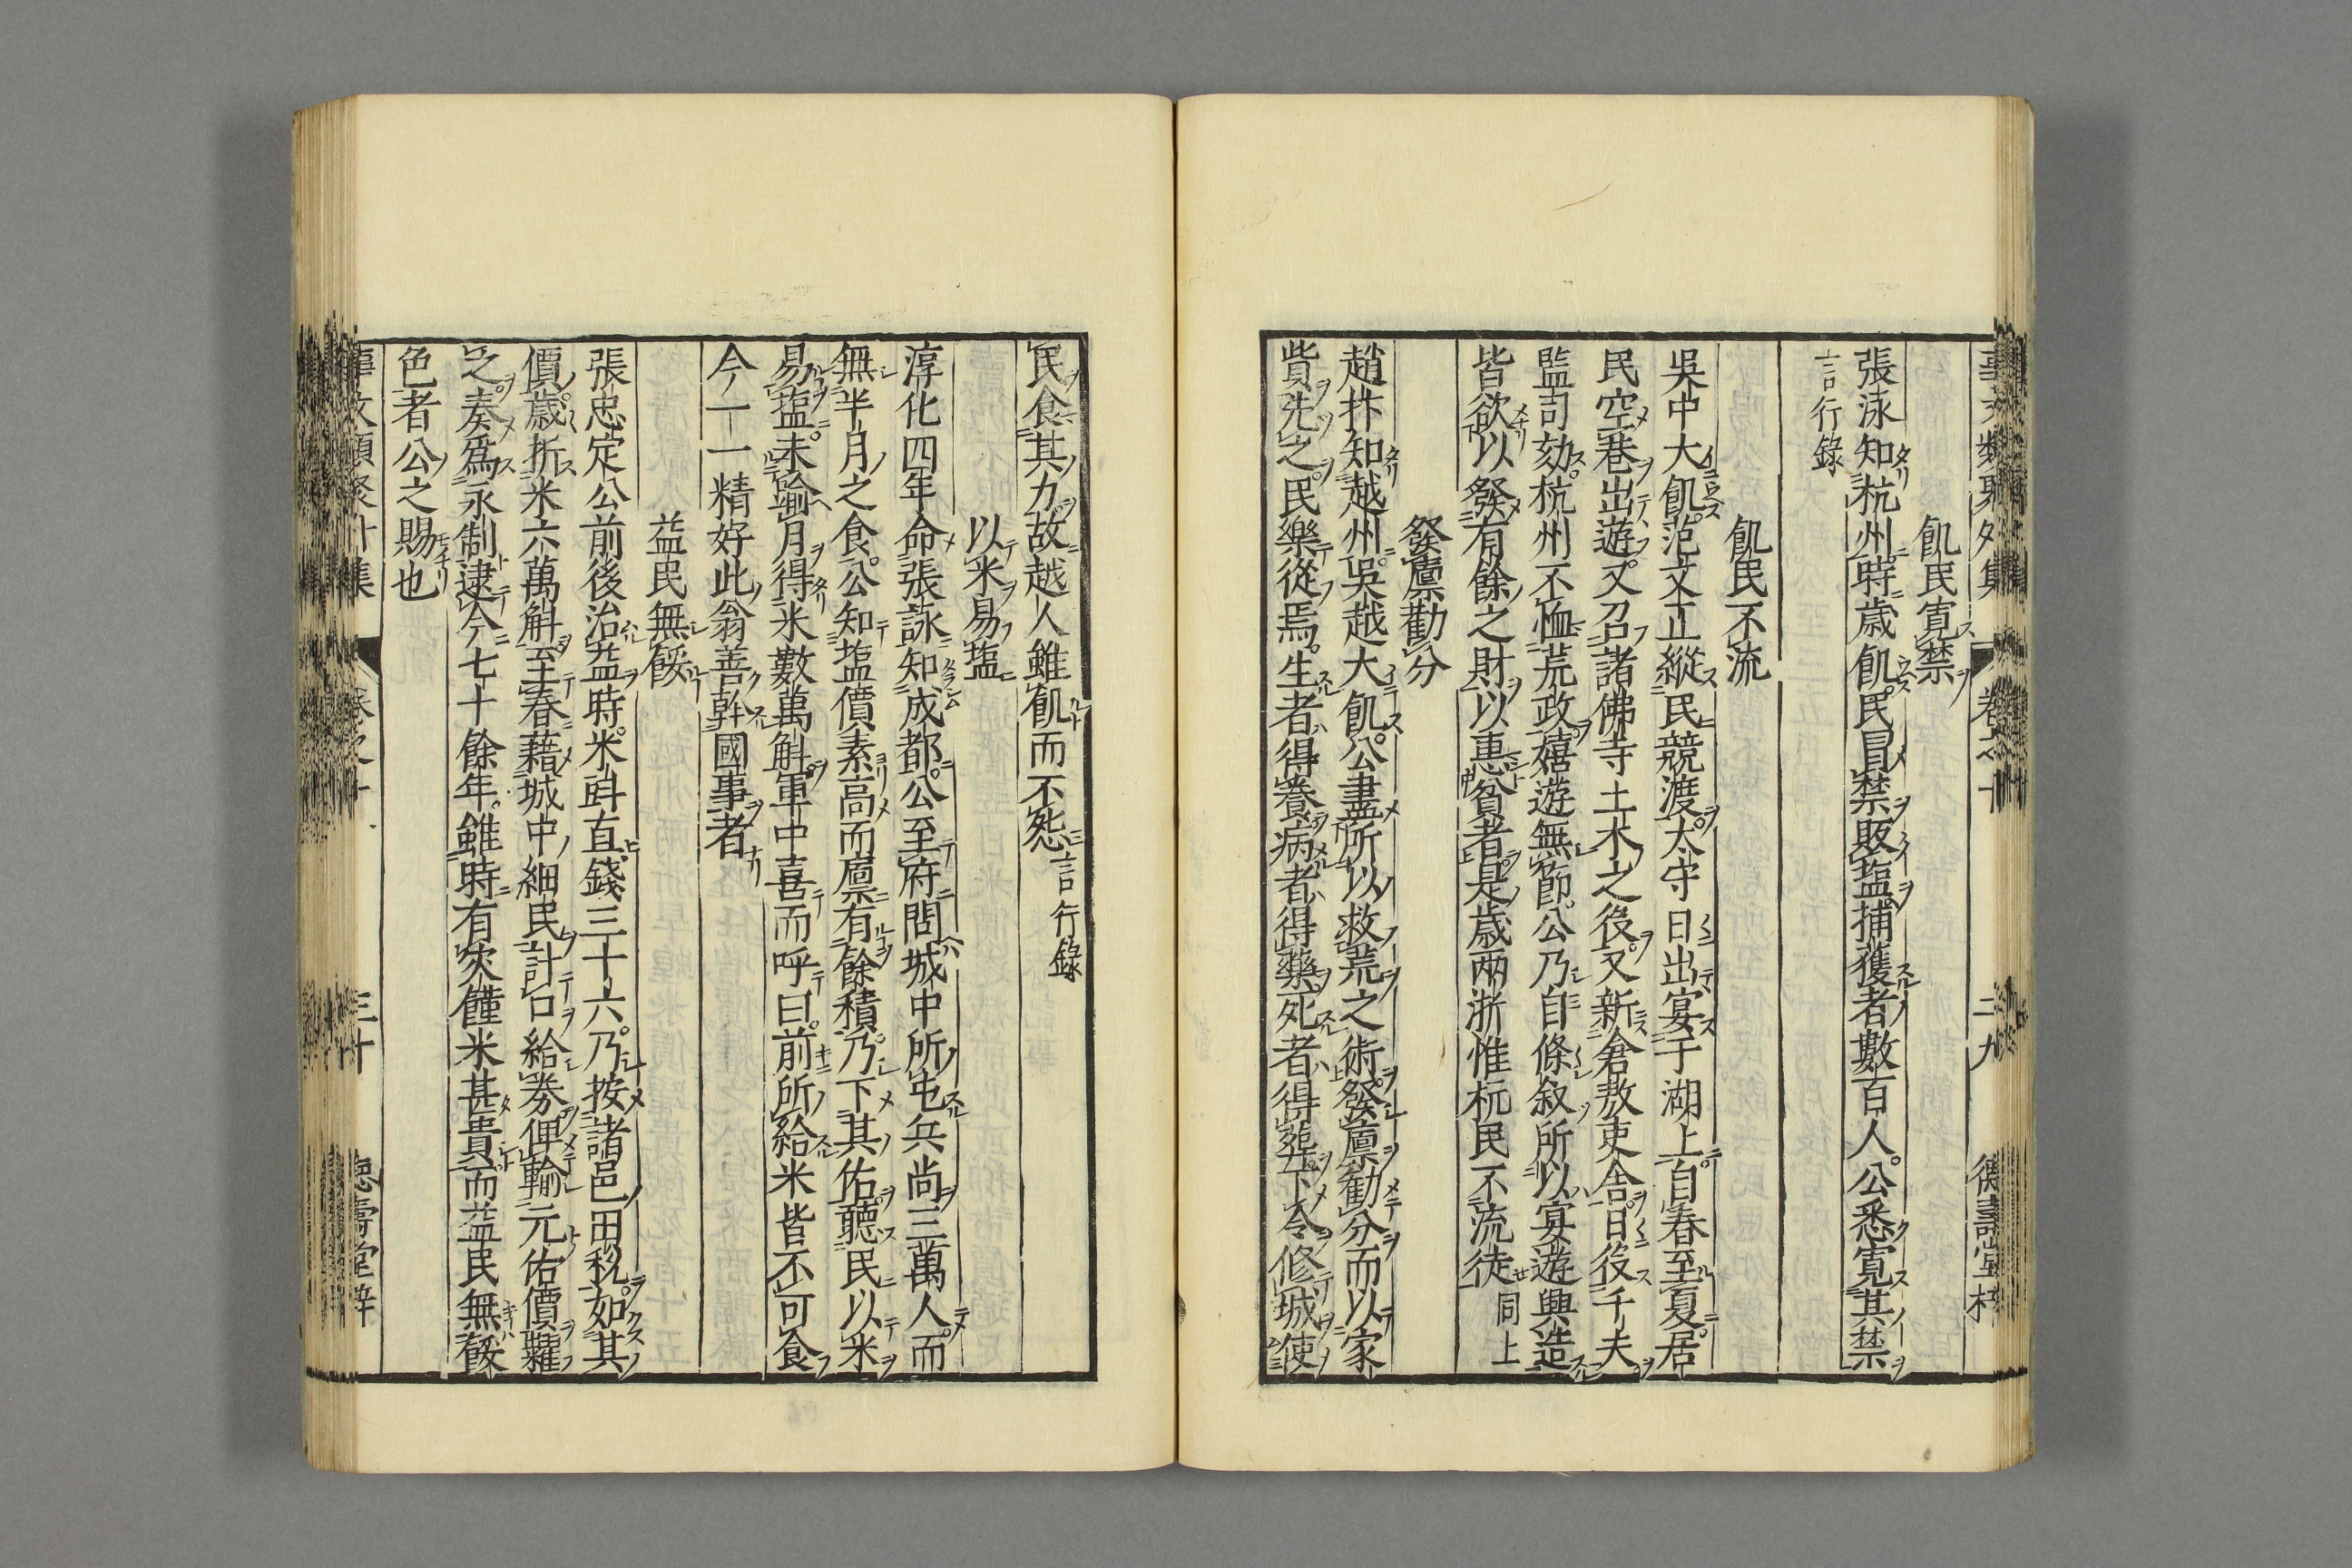 事文類聚外集 卷之十 二九 德壽堂梓
飢民寬禁
張泳知杭州時歲飢民冒禁販塩捕獲者數百人公悉寬其禁
言行錄
飢民不流
吳中大飢范文正縱民競渡太守日出宴于湖上自春至夏居
民空巷出遊又召諸佛寺土木之役又新倉敖吏舍日役千夫
監司劾杭州不恤荒政嬉遊無節公乃自條叙所以宴遊興造
皆欲以發有餘之財以惠貧者是歲兩浙惟杭民不流徒 同上
發廩勸分
趙抃知越州吳越大飢公盡所以救荒之術發廩勸分而以家
貲先之民樂從焉生者得養病者得藥死者得葬下令修城使
民食其力故越人雖飢而不怨 言行錄
以米易塩
淳化四年命張詠知成都公至府問城中所屯兵尚三萬人而
無半月之食公知塩價素高而廩有餘積乃下其佑聽民以米
易塩未踰月得米數萬斛軍中喜而呼曰前所給米皆不可食
今一一精好此翁善幹國事者
益民無餒
張忠定公前後治益時米斗直錢三十六乃按諸邑田税如其
價歲折米六萬斛至春藉城中細民計口給券俾輸元佑價糴
之奏爲永制逮今七十餘年雖時有灾饉米甚貴而益民無餒
色者公之賜也
事文類聚外集 卷之十 三十 德壽堂梓